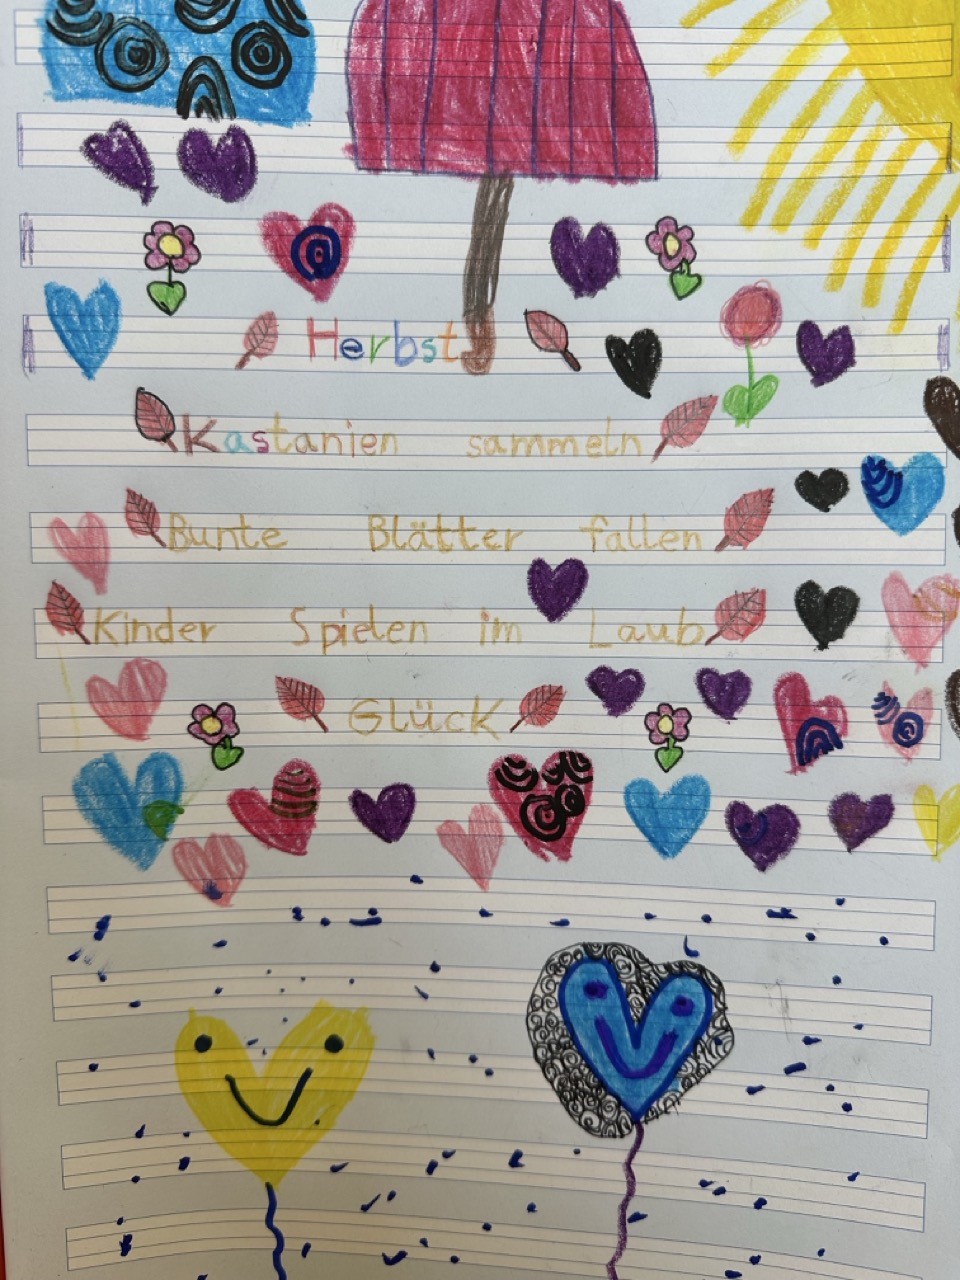 Herbst
Kastanien sammeln
Bunte Blätter fallen
Kinder Spielen im Laub
Glück